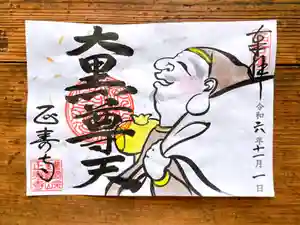 奉拝
令和六年十一月一日
大黒尊天
正寿寺